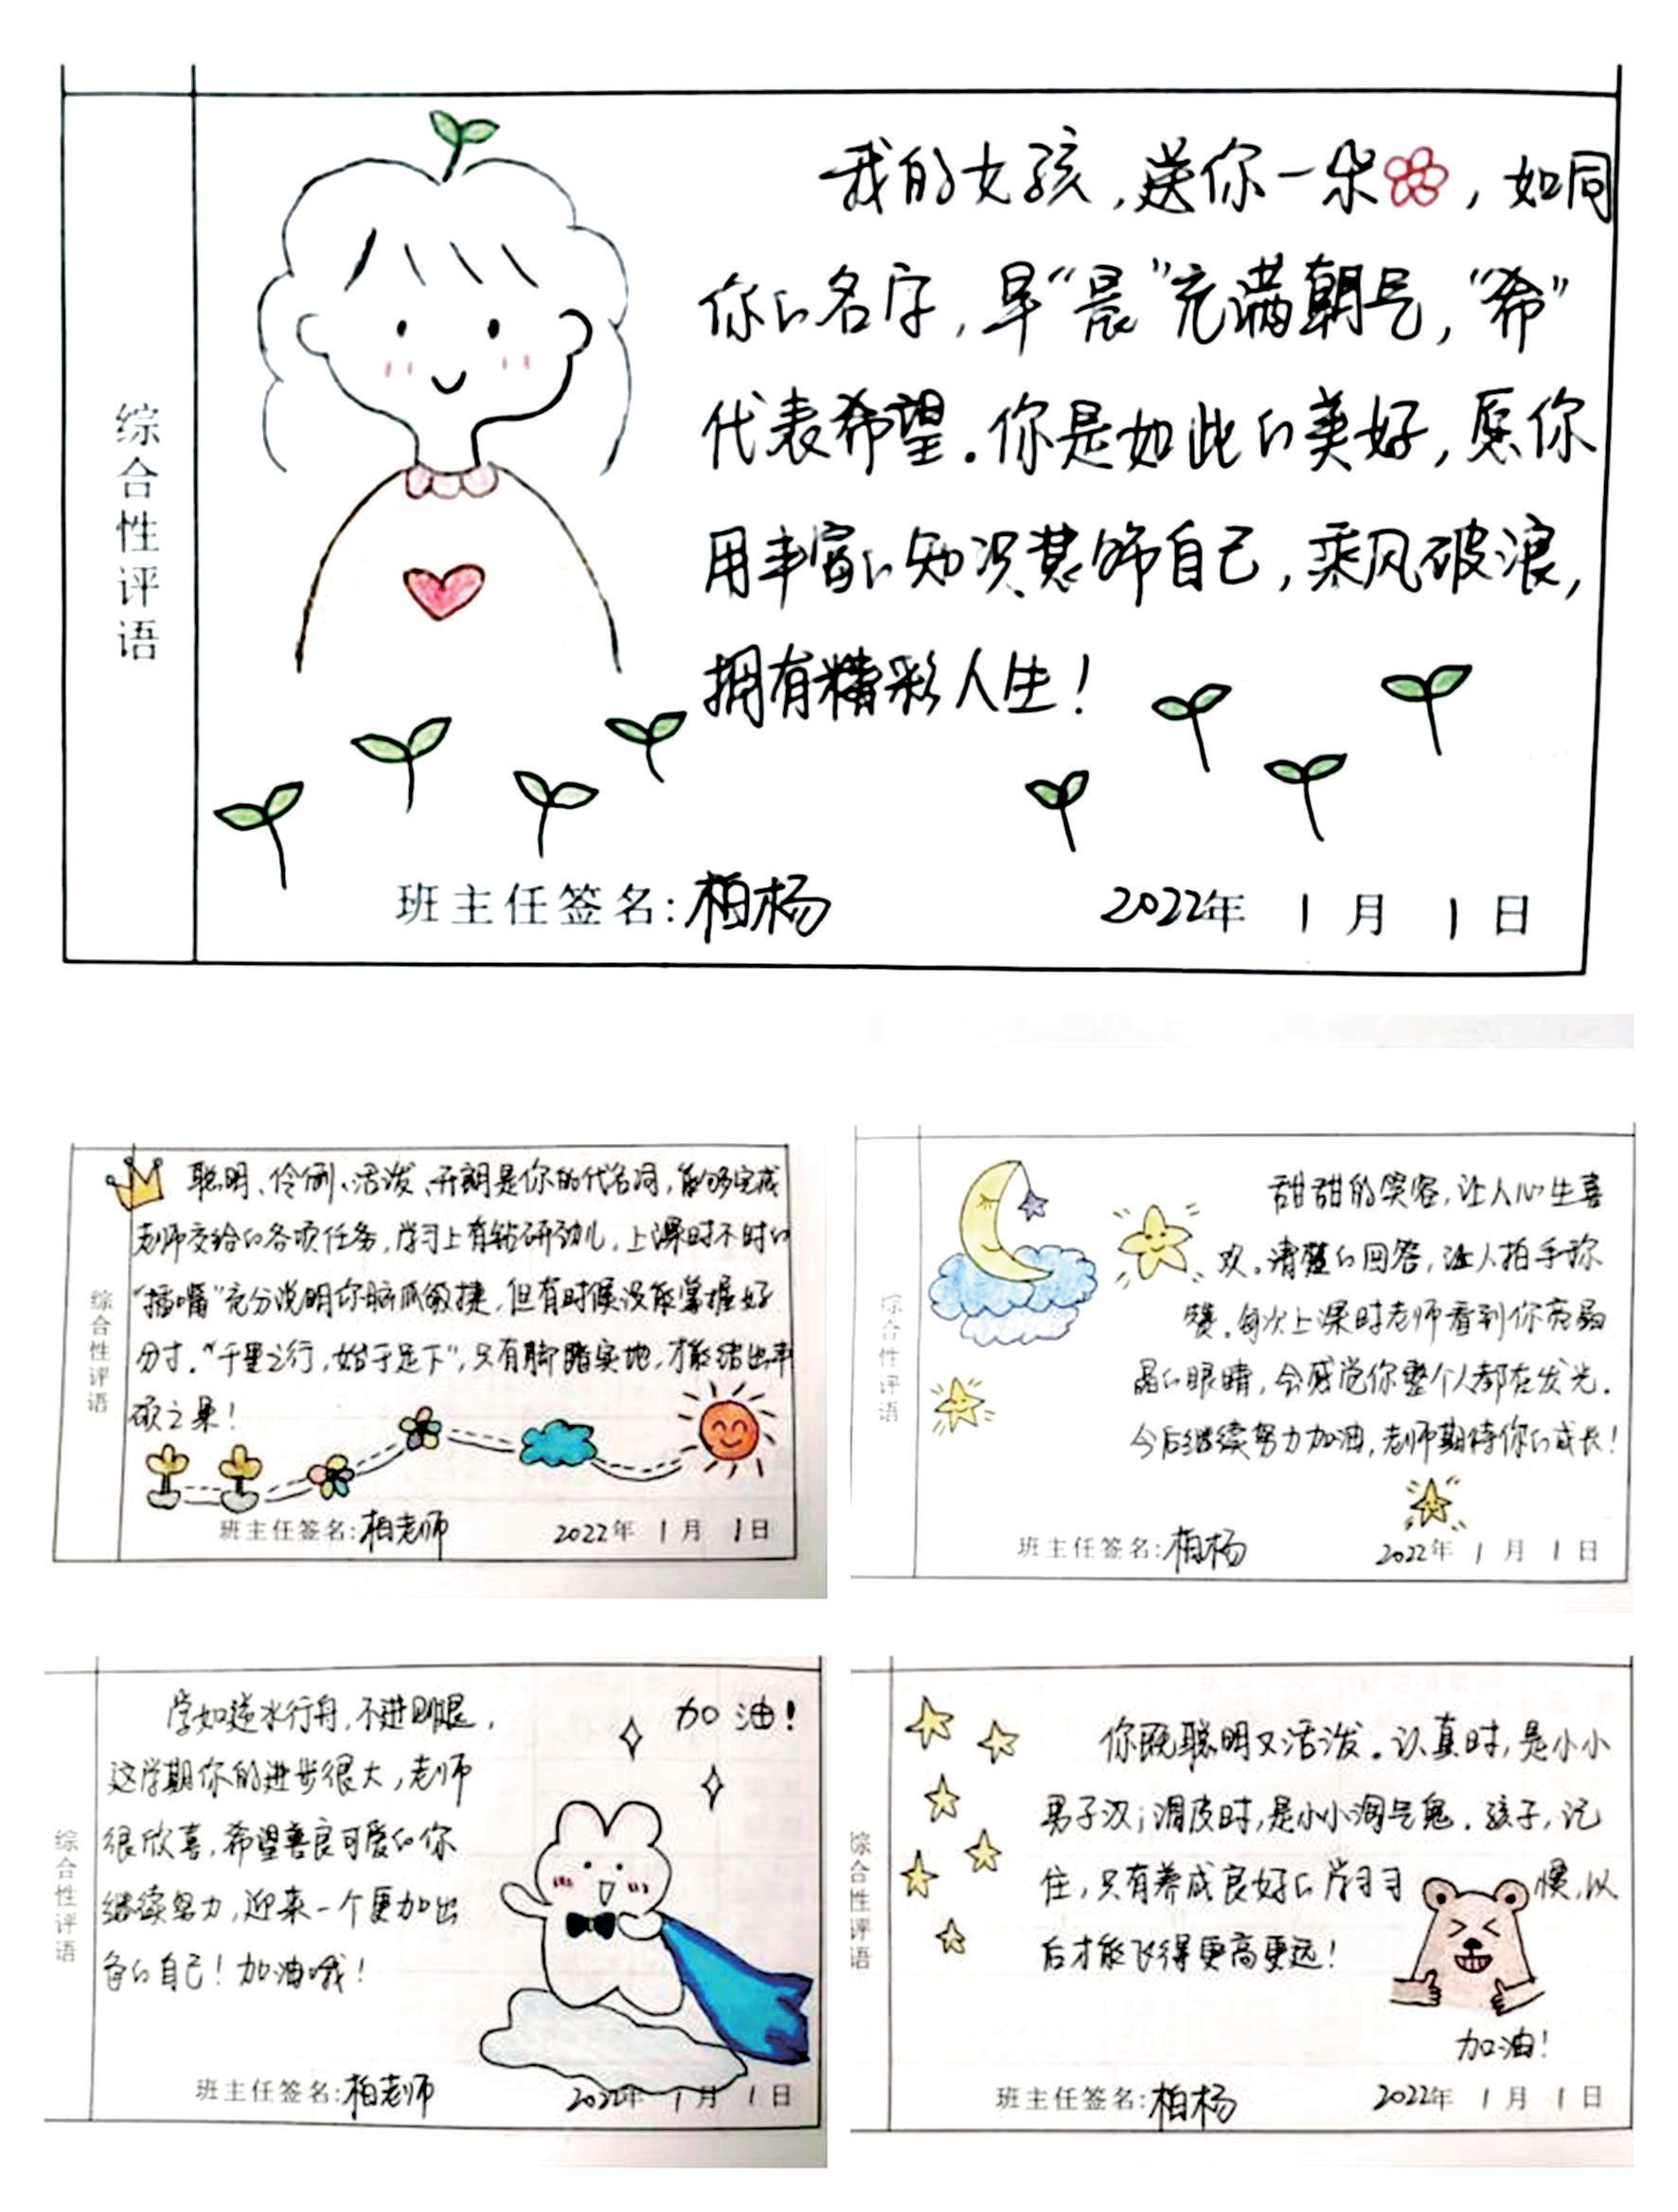 综合性评语
我的女孩，送你一朵，如同
你的名字，早“晨”充满朝气，“希”
代表希望。你是如此的美好，愿你
用丰富的知识装饰自己，乘风破浪，
拥有精彩人生！
班主任签名：柏杨 2022年 1月 1日
综合性评语
聪明、伶俐、活泼、开朗是你的代名词，能够完成
老师交给的各项任务，学习上有钻研劲儿，上课时不时的
“插嘴”充分说明你脑瓜敏捷，但有时候没能掌握好
分寸。“千里之行，始于足下”，只有脚踏实地，才能结出丰
硕之果！
班主任签名：柏老师 2022年 1月 1日
综合性评语
甜甜的笑容，让人心生喜
欢。清楚的回答，让人拍手称
赞。每次上课时老师看到你亮晶
晶的眼睛，会感觉你整个人都在发光。
今后继续努力加油，老师期待你的成长！
班主任签名：柏杨 2022年 1月 1日
综合性评语
学如逆水行舟，不进则退，
这学期你的进步很大，老师
很欣喜，希望善良可爱的你
继续努力，迎来一个更加出
色的自己！加油哦！
加油！
班主任签名：柏老师 2022年 1月 1日
综合性评语
你既聪明又活泼。认真时，是小小
男子汉；调皮时，是小小淘气鬼。孩子，记
住，只有养成良好的学习习惯，以
后才能飞得更高更远！
加油！
班主任签名：柏杨 2022年 1月 1日